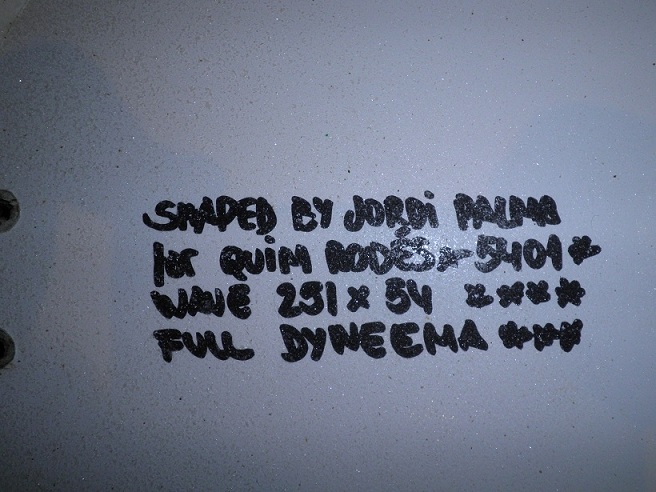 SHAPED BY JORDi PALMA
for QUiM RODÉS * 5401 *
WAVE 251 x 54 ****
FULL DYNEEMA ***